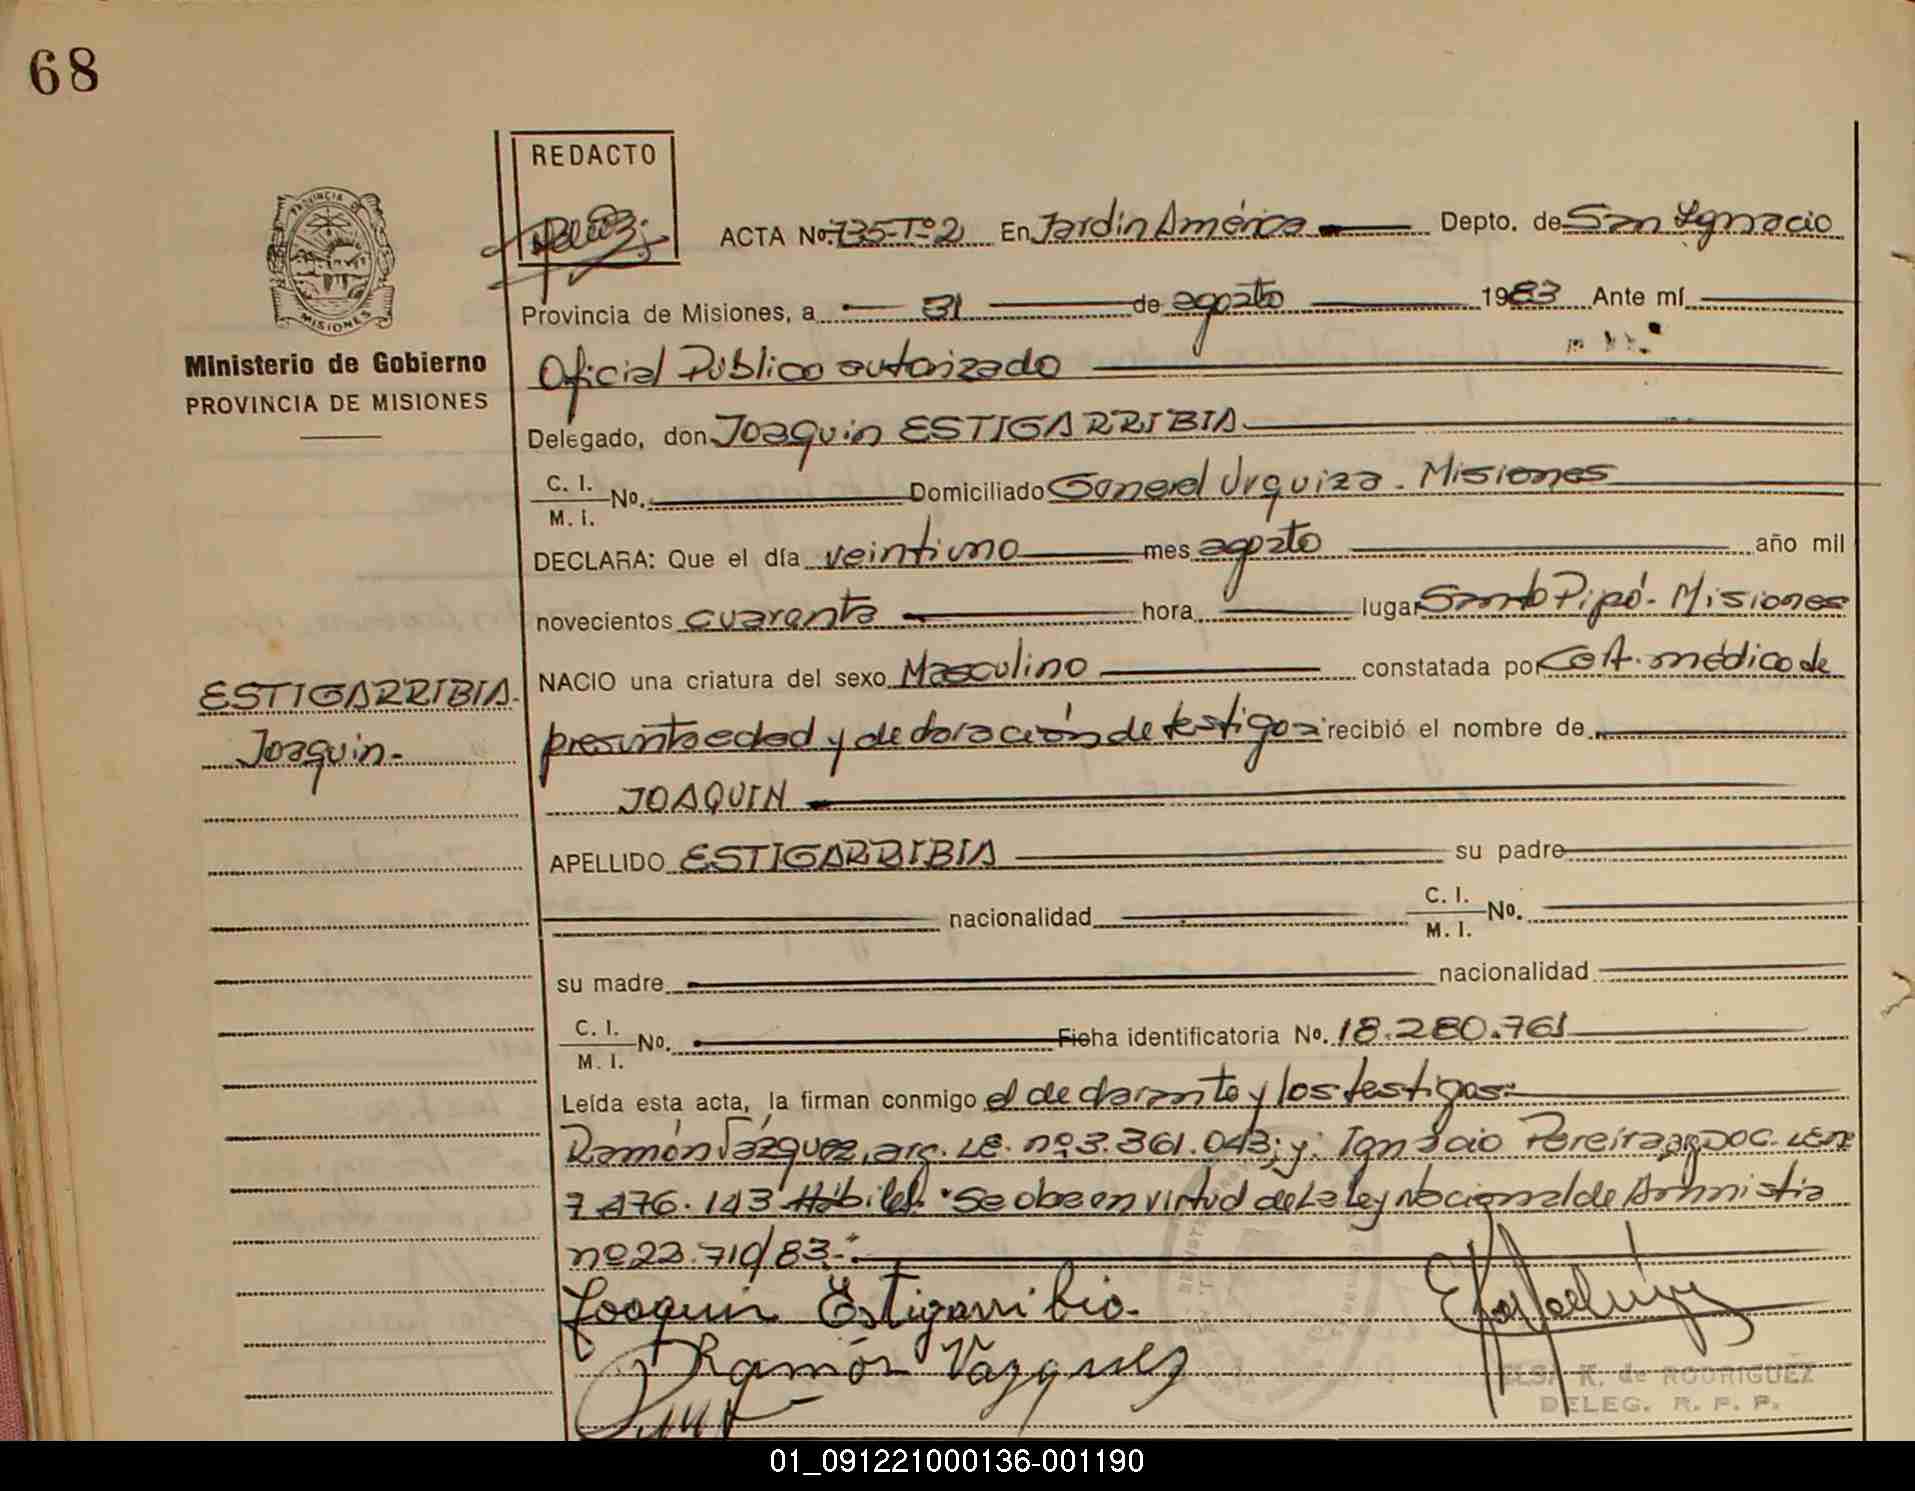 68
REDACTO
ACTA No. 735-Tº2 En Jardín América Depto. de San Ignacio
PROVINCIA DE
MISIONES
Provincia de Misiones, a 31 de agosto 1983 Ante mí
Ministerio de Gobierno
PROVINCIA DE MISIONES
Oficial Público autorizado
Delegado, don Joaquin ESTIGARRIBIA
C. I.
M. I. No. Domiciliado General Urquiza - Misiones
DECLARA: Que el día veintiuno mes agosto año mil
novecientos cuarenta hora lugar Santo Pipó - Misiones
NACIO una criatura del sexo Masculino constatada por Cert. médico de
ESTIGARRIBIA.
Joaquin.-
presunta edad y declaración de testigos recibió el nombre de
JOAQUIN
APELLIDO ESTIGARRIBIA su padre
nacionalidad C. I.
M. I. No.
su madre nacionalidad
C. I.
M. I. No. Ficha identificatoria No. 18.280.761
Leída esta acta, la firman conmigo el declarante y los testigos:
Ramón Vázquez, arg. LE. nº 3.361.043; y: Ignacio Pereira, arg DOC. LE Nº
7.476.143 Hábiles. "Se labra en virtud de la Ley Nacional de Amnistia
nº 22.710/83.-
Joaquin Estigarribia.
Ramón Vazquez
ELSA K. de RODRIGUEZ
DELEG. R. P. P.
01_091221000136-001190